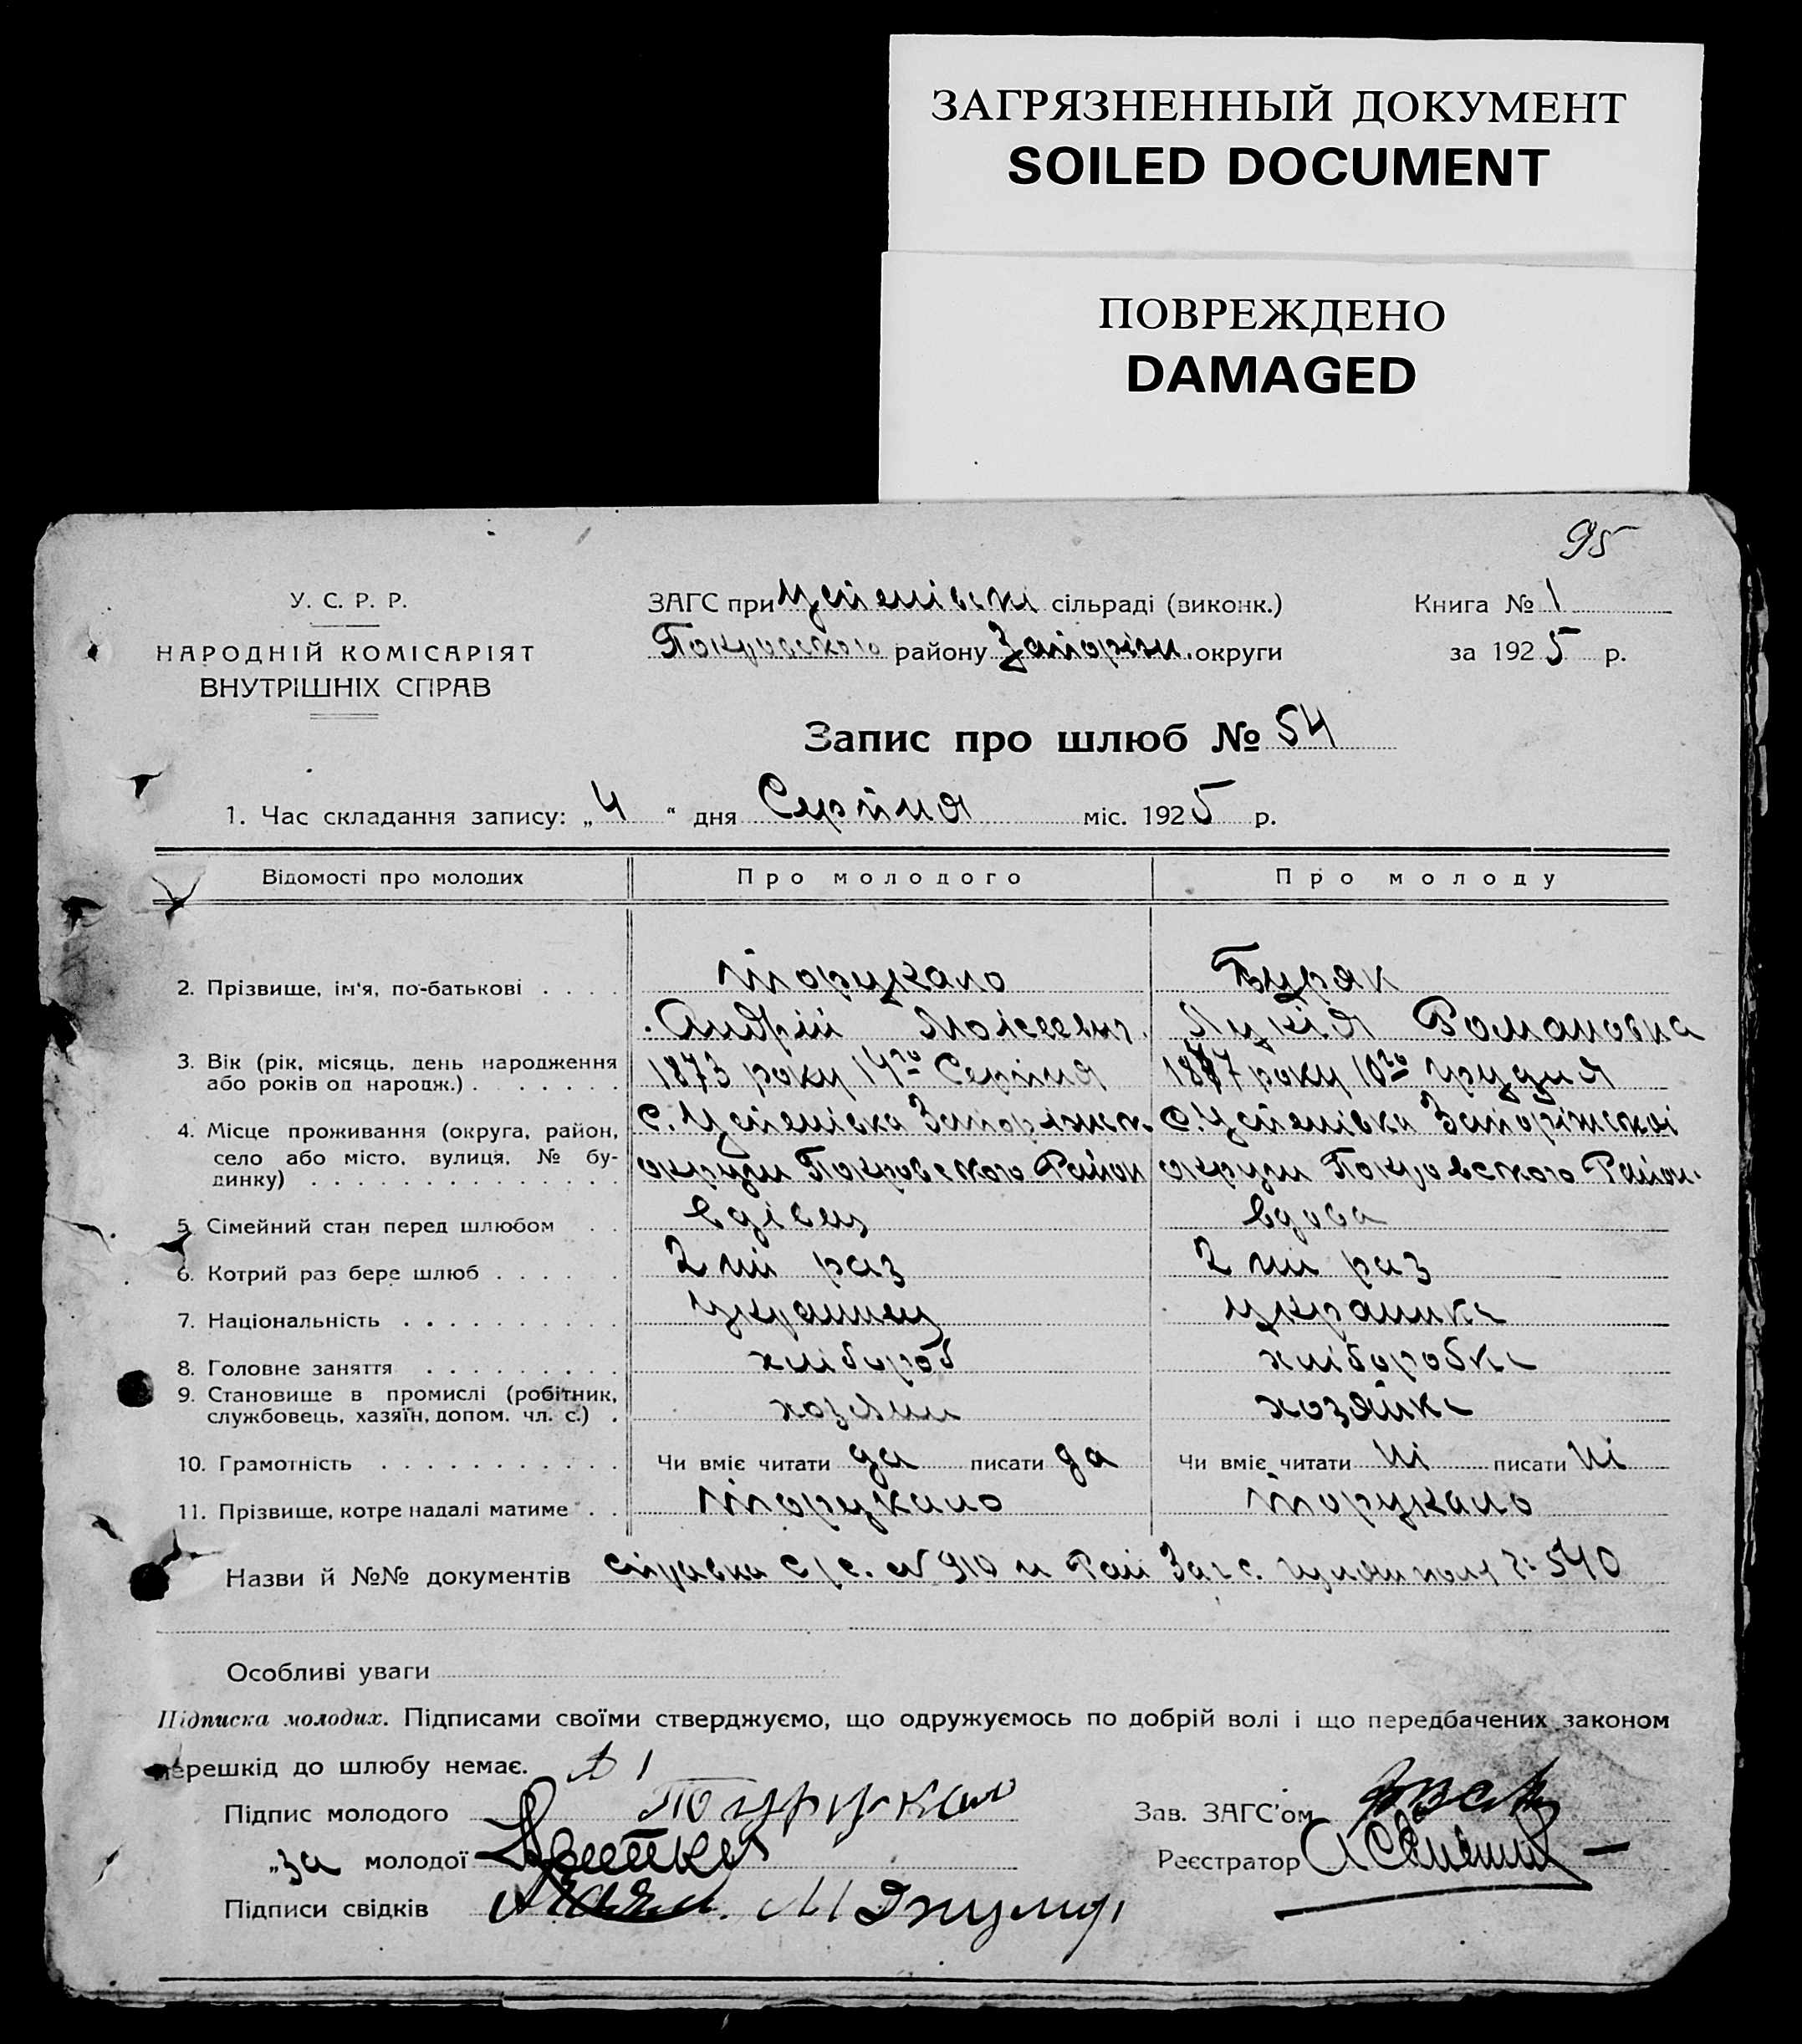 ЗАГРЯЗНЕННЫЙ ДОКУМЕНТ
SOILED DOCUMENT
ПОВРЕЖДЕНО
DAMAGED
95
У. С. Р. Р.
НАРОДНІЙ КОМІСАРІЯТ
ВНУТРІШНІХ СПРАВ
ЗАГС при Успенівскі сільраді (виконк.)
Покровского району Запоріжж. округи
Книга № 1
за 1925 р.
Запис про шлюб № 54
1. Час складання запису: „4“ дня Серпня міс. 1925 р.
Відомості про молодих Про молодого Про молоду
2. Прізвище, ім'я, по-батькові . . . . Торукало Буряк
Андрій Моісеевич Лукія Романовна
3. Вік (рік, місяць, день народження або років од народж.) . . . . . . . 1873 року 14го Серпня 1877 року 10го грудня
4. Місце проживання (округа, район, село або місто, вулиця, № будинку) . . . . . . . . . . . . . . С. Успенівка Запоріжск. округи Покровского Район С. Успенівка Запоріжскоі округи Покровского Район.
5. Сімейний стан перед шлюбом . . вдівец вдова
6. Котрий раз бере шлюб . . . . . . 2 ий раз 2 ий раз
7. Національність . . . . . . . . . . украинец украинка
8. Головне заняття . . . . . . . . . хлібороб хліборобка
9. Становище в промислі (робітник, службовець, хазяїн, допом. чл. с.) . хозяин хозяйка
10. Грамотність . . . . . . . . . . . Чи вміє читати да писати да Чи вміє читати ні писати ні
11. Прізвище, котре надалі матиме . . Торукало Торукало
Назви й №№ документів справка С/с. № 910 и Рай Загс. 540
Особливі уваги
Підписка молодих. Підписами своїми стверджуємо, що одружуємось по добрій волі і що передбачених законом
перешкід до шлюбу немає.
Підпис молодого Турукало Зав. ЗАГС'ом
„за молодої Реєстратор
Підписи свідків М